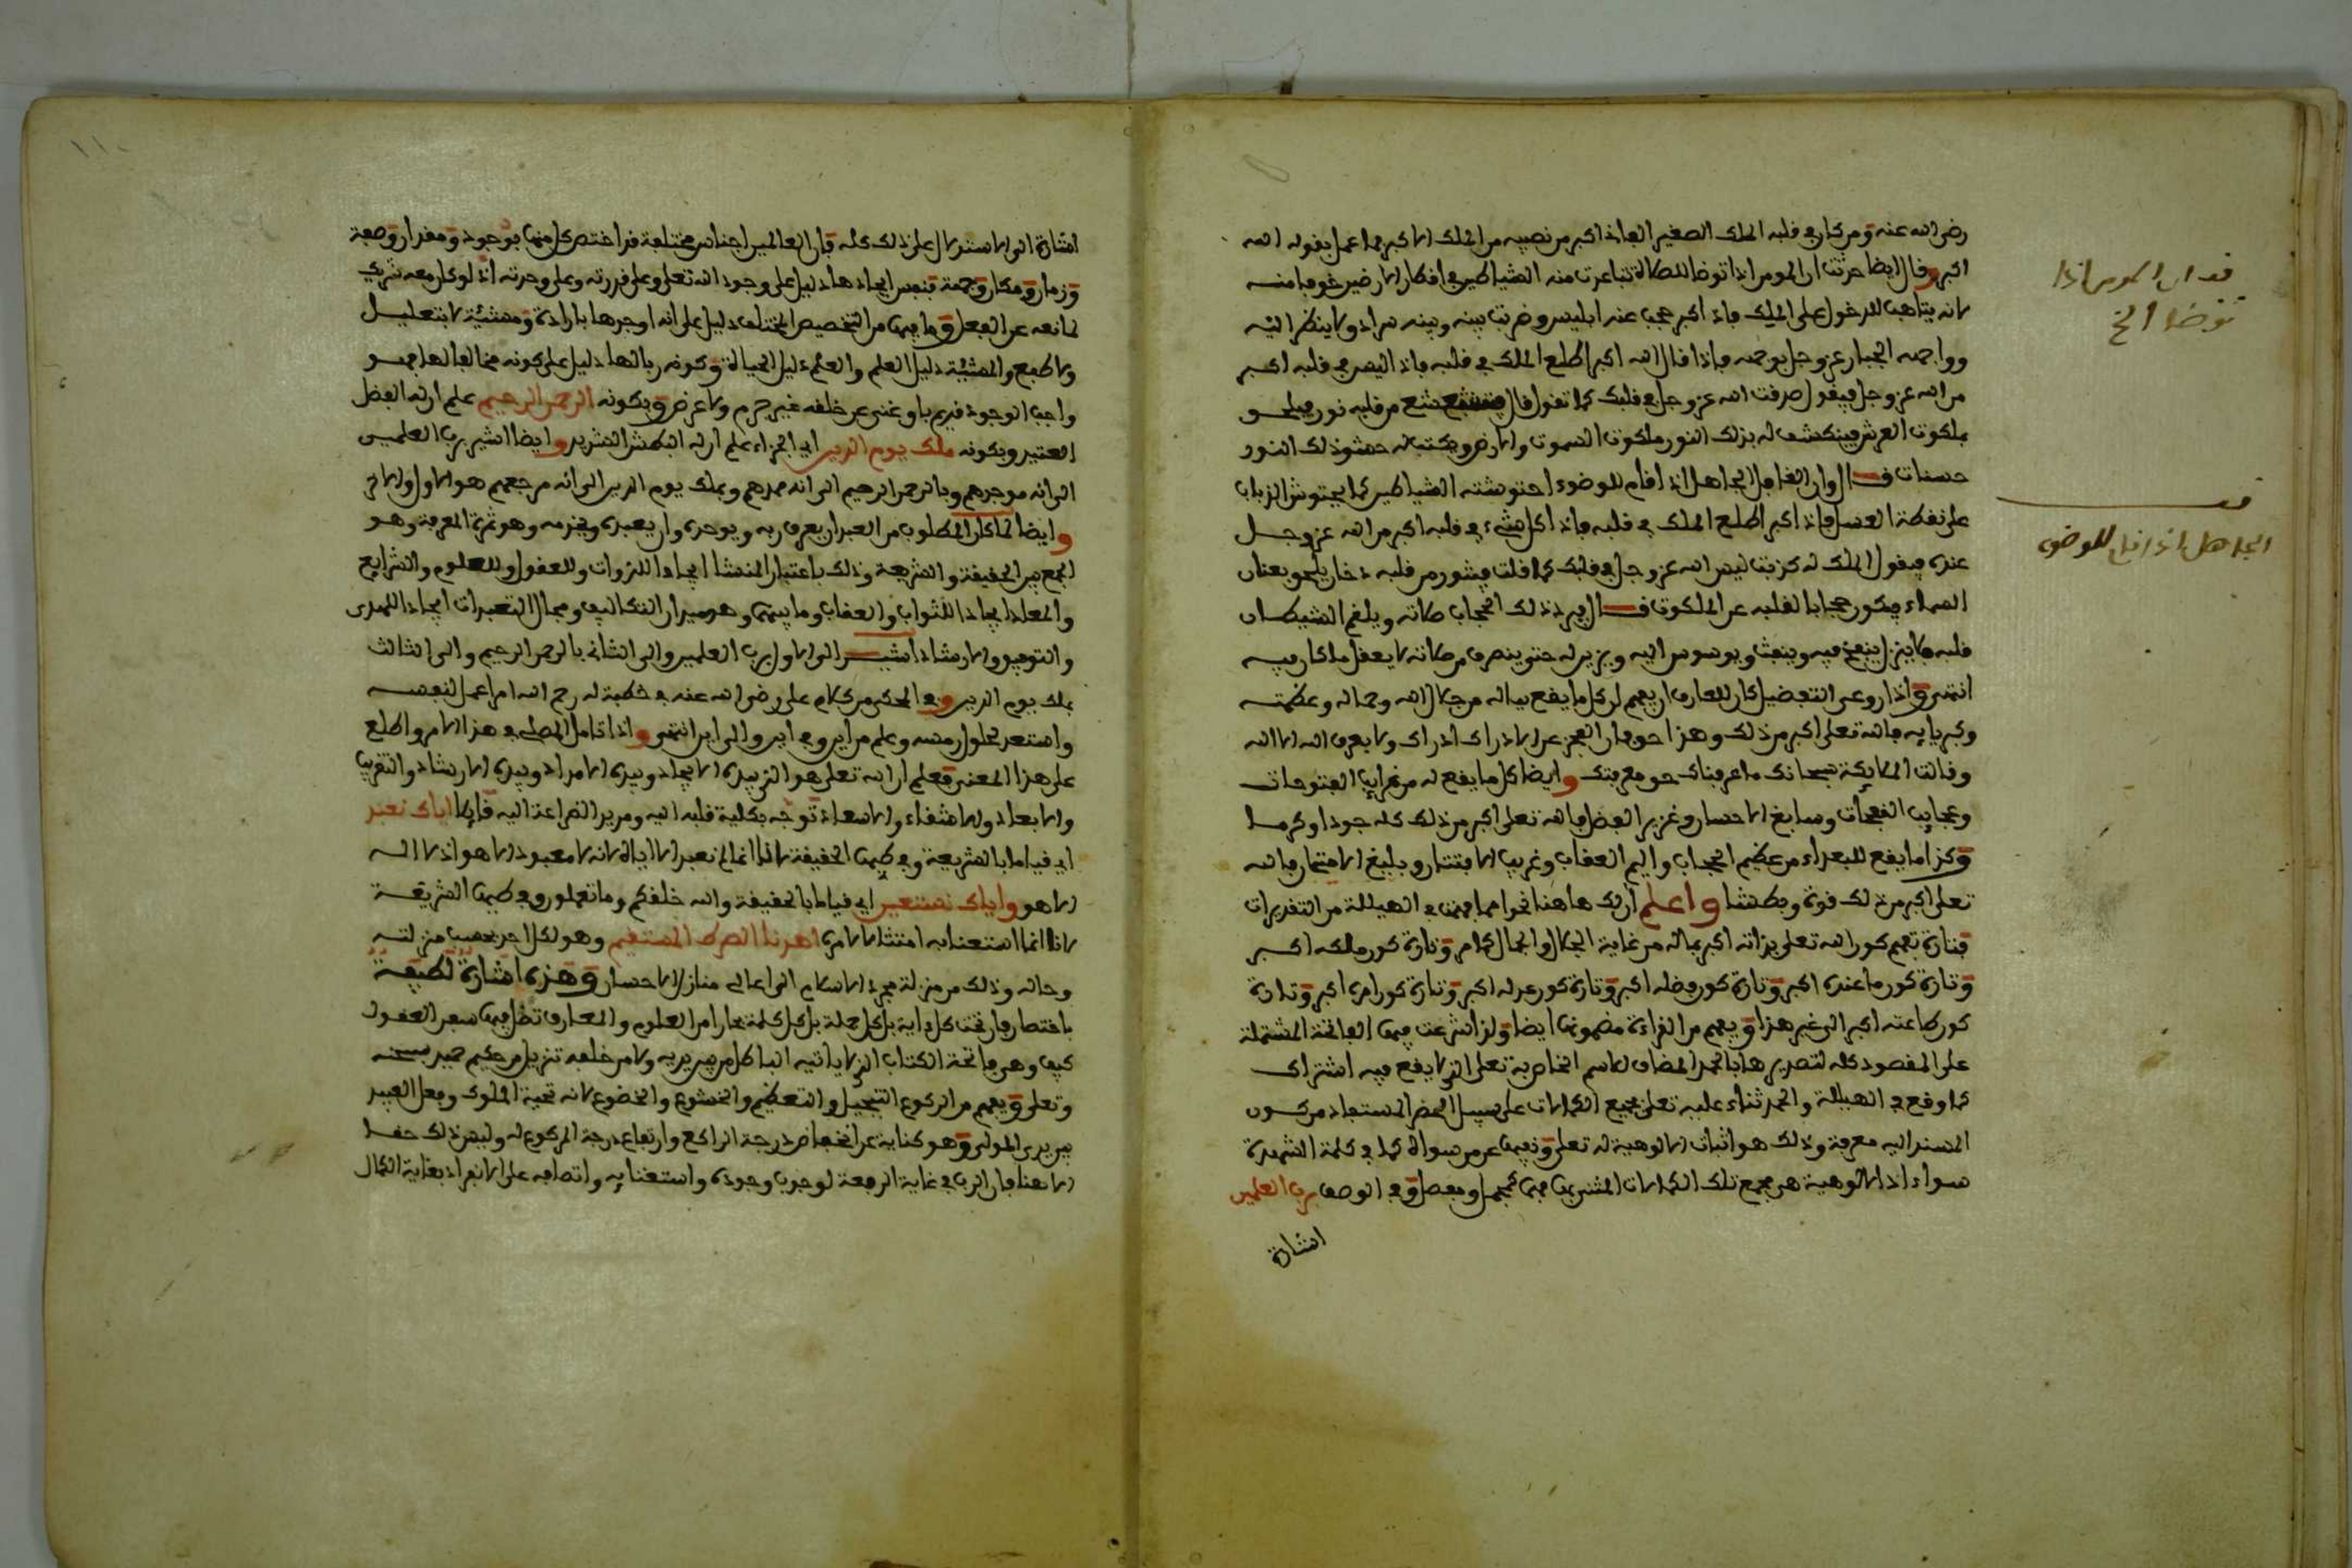 رضي الله عنه ومن كان في قلبه الملك الصغير الفاني اكبر من نصيبه من الملك الاكبر فما عمل بقوله الله
اكبر وقال ايضا حدثت ان المومن اذا توضا للصلاة تباعدت منه الشياطين في افكار الارض خوفا منه
لانه يتاهب للدخول على الملك فاذا كبر حجب عنه ابليس وضرب بينه وبينه سرادق لا ينظر اليه
وواجهه الجبار عز وجل بوجهه فاذا قال الله اكبر اطلع الملك في قلبه فاذا ليس في قلبه اكبر
من الله عز وجل فيقول صدقت الله عز وجل في قلبك كما تقول قال فيتشعشع من قلبه نور يلحق
بملكوت العرش فينكشف له بذلك النور ملكوت السموت والارض ويكتب له حشو ذلك النور
حسنات قال وان الغافل الجاهل اذا قام للوضوء احتوشته الشياطين كما يحتوش الذباب
على نقطة العسل فاذا كبر اطلع الملك في قلبه فاذا كل شيء في قلبه اكبر من الله عز وجل
عنده فيقول الملك له كذبت ليس الله عز وجل في قلبك كما قلت فيثور من قلبه دخان يلحق بعنان
السماء فيكون حجابا لقلبه عن الملكوت قال فيرد ذلك الحجاب صلاته ويلقم الشيطان
قلبه فلا يزال ينفخ فيه وينفث ويوسوس اليه ويزين له حتى ينصرف من صلاته لا يعقل ما كان فيه
انتهى واذا روعي التفضيل كان للعارف ان يفهم ان كل ما يقع بباله من جلال الله وجماله وعظمته
وكبريايه فالله تعلى اكبر من ذلك وهذا حق فان العجز عن الادراك ادراك ولا يعرف الله الا الله
وقالت الملايكة سبحانك ما عرفناك حق معرفتك وايضا كل ما يقع له من غرايب الفتوحات
وعجايب النفحات وسابغ الاحسان وغزير الفضل فالله تعلى اكبر من ذلك كله جودا وكرما
وكذا ما يقع للبعداء من عظيم الحجاب واليم العقاب وغريب الافتتان وبليغ الامتحان فالله
تعلى اكبر من ذلك قوة وبطشا واعلم ان لك هاهنا نحوا مما فهمت في الهيللة من التقديرات
فتارة تفهم كون الله تعلى بذاته اكبر بماله من غاية الجلال والجمال كما مر وتارة كون ملكه اكبر
وتارة كون ما عنده اكبر وتارة كون فضله اكبر وتارة كون عدله اكبر وتارة كون امره اكبر وتارة
كون طاعته اكبر الى غير هذا ويفهم من القراءة مضمونها ايضا ولذا شرعت فيها الفاتحة المشتملة
على المقصود كله لتصديرها بالحمد المضاف للاسم الخاص به تعلى الذي لا يقع فيه اشتراك
كما وقع في الهيللة والحمد ثناء عليه تعلى بجميع الكمالات على سبيل الحصر المستفاد من كون
المسند اليه معرفة وذلك هو اثبات الالوهية له تعلى ونفيها عن من سواه كما في كلمة الشهادة
سواء اذ الالوهية هي مجمع تلك الكمالات المشتريتين فيها مجمل ومفصل وفي الوصف برب العلمين
اشارة
قف ان المومن اذا
توضا الخ
قف
الجاهل اذا قام للوضوء
١١٠
اشارة الى الاستدلال على ذلك كله فان العالمين اجناس مختلفة قد اختص كل منها بوجود ومقدار وصفة
وزمان ومكان وجهة فنفس ايجادها دليل على وجود الله تعلى وعلى قدرته وعلى وحدته اذ لو كان معه شريك
لمانعه عن الفعل وما فيها من التخصيص المختلف دليل على انه اوجدها بارادة ومشيئة لا بتعليل
ولا طبع والمشيئة دليل العلم والعلم دليل الحياة وكونه ربا لها دليل على كونه مخالفا لها فهو
واجب الوجود قديم باق غني عن خلقه غير جرم ولا عرض وبكونه الرحمن الرحيم علم ان له الفضل
العتيد وبكونه ملك يوم الدين اي الجزاء علم ان له البطش الشديد وايضا اشير برب العلمين
الى انه موجدهم وبالرحمن الرحيم الى انه ممدهم وبملك يوم الدين الى انه مرجعهم هو الاول والاخر
وايضا لما كان المطلوب من العبد ان يعرف ربه ويوحده وان يعبده ويخدمه وهو ثمرة المعرفة وهو
الجمع بين الحقيقة والشريعة وذلك باعتبار المنشا ايجادا للذوات وللعقول وللعلوم والشرايع
والمعاد ايجادا للثواب والعقاب وما بينهما وهو ميدان التكاليف ومجال التعبدات ايجادا للهدى
والتوفيق والارشاد اشير الى الاول برب العلمين والى الثاني بالرحمن الرحيم والى الثالث
بملك يوم الدين وفي الحكم من كلام علي رضي الله عنه في خطبة له رحم الله امرا عمل لنفسه
واستعد لحلول رمسه وعلم من اين وفي اين والى اين انتهى واذا تامل المصلي هذا الامر واطلع
على هذا المعنى فعلم ان الله تعلى هو الذي بيده الايجاد وبيده الامداد وبيده الارشاد والتقريب
والابعاد والاشقاء والاسعاد توجه بكلية قلبه اليه ومد يد الضراعة اليه قائلا اياك نعبد
اي قياما بالشريعة وفي طيها الحقيقة لانا انما لم نعبد الا اياه لانه لا معبود الا هو اذ لا اله
الا هو واياك نستعين اي قياما بالحقيقة والله خلقكم وما تعملون وفي طيها الشريعة
لانا انما استعنا به امتثالا لامره اهدنا الصرط المستقيم وهو لكل احد بحسب منزلته
وحاله وذلك من منزلة مجرد الاسلام الى اعالي منازل الاحسان وهذه اشارة لطيفة
باختصار فان تحت كل اية بل كل جملة بل كل كلمة بحارا من العلوم والمعارف تضل فيها سفن العقول
كيف وهي فاتحة الكتاب الذي لا ياتيه الباطل من بين يديه ولا من خلفه تنزيل من حكيم حميد سبحنه
وتعلى ويفهم من الركوع التبجيل والتعظيم والخشوع والخضوع لانه تحية الملوك وفعل العبيد
بين يدي المولى وهو كناية عن انخفاض درجة الراكع وارتفاع درجة المركوع له وليس ذلك حقا
الا هنا فان الرب في غاية الرفعة لوجوب وجوده واستغنايه واتصافه على الانفراد بغاية الكمال